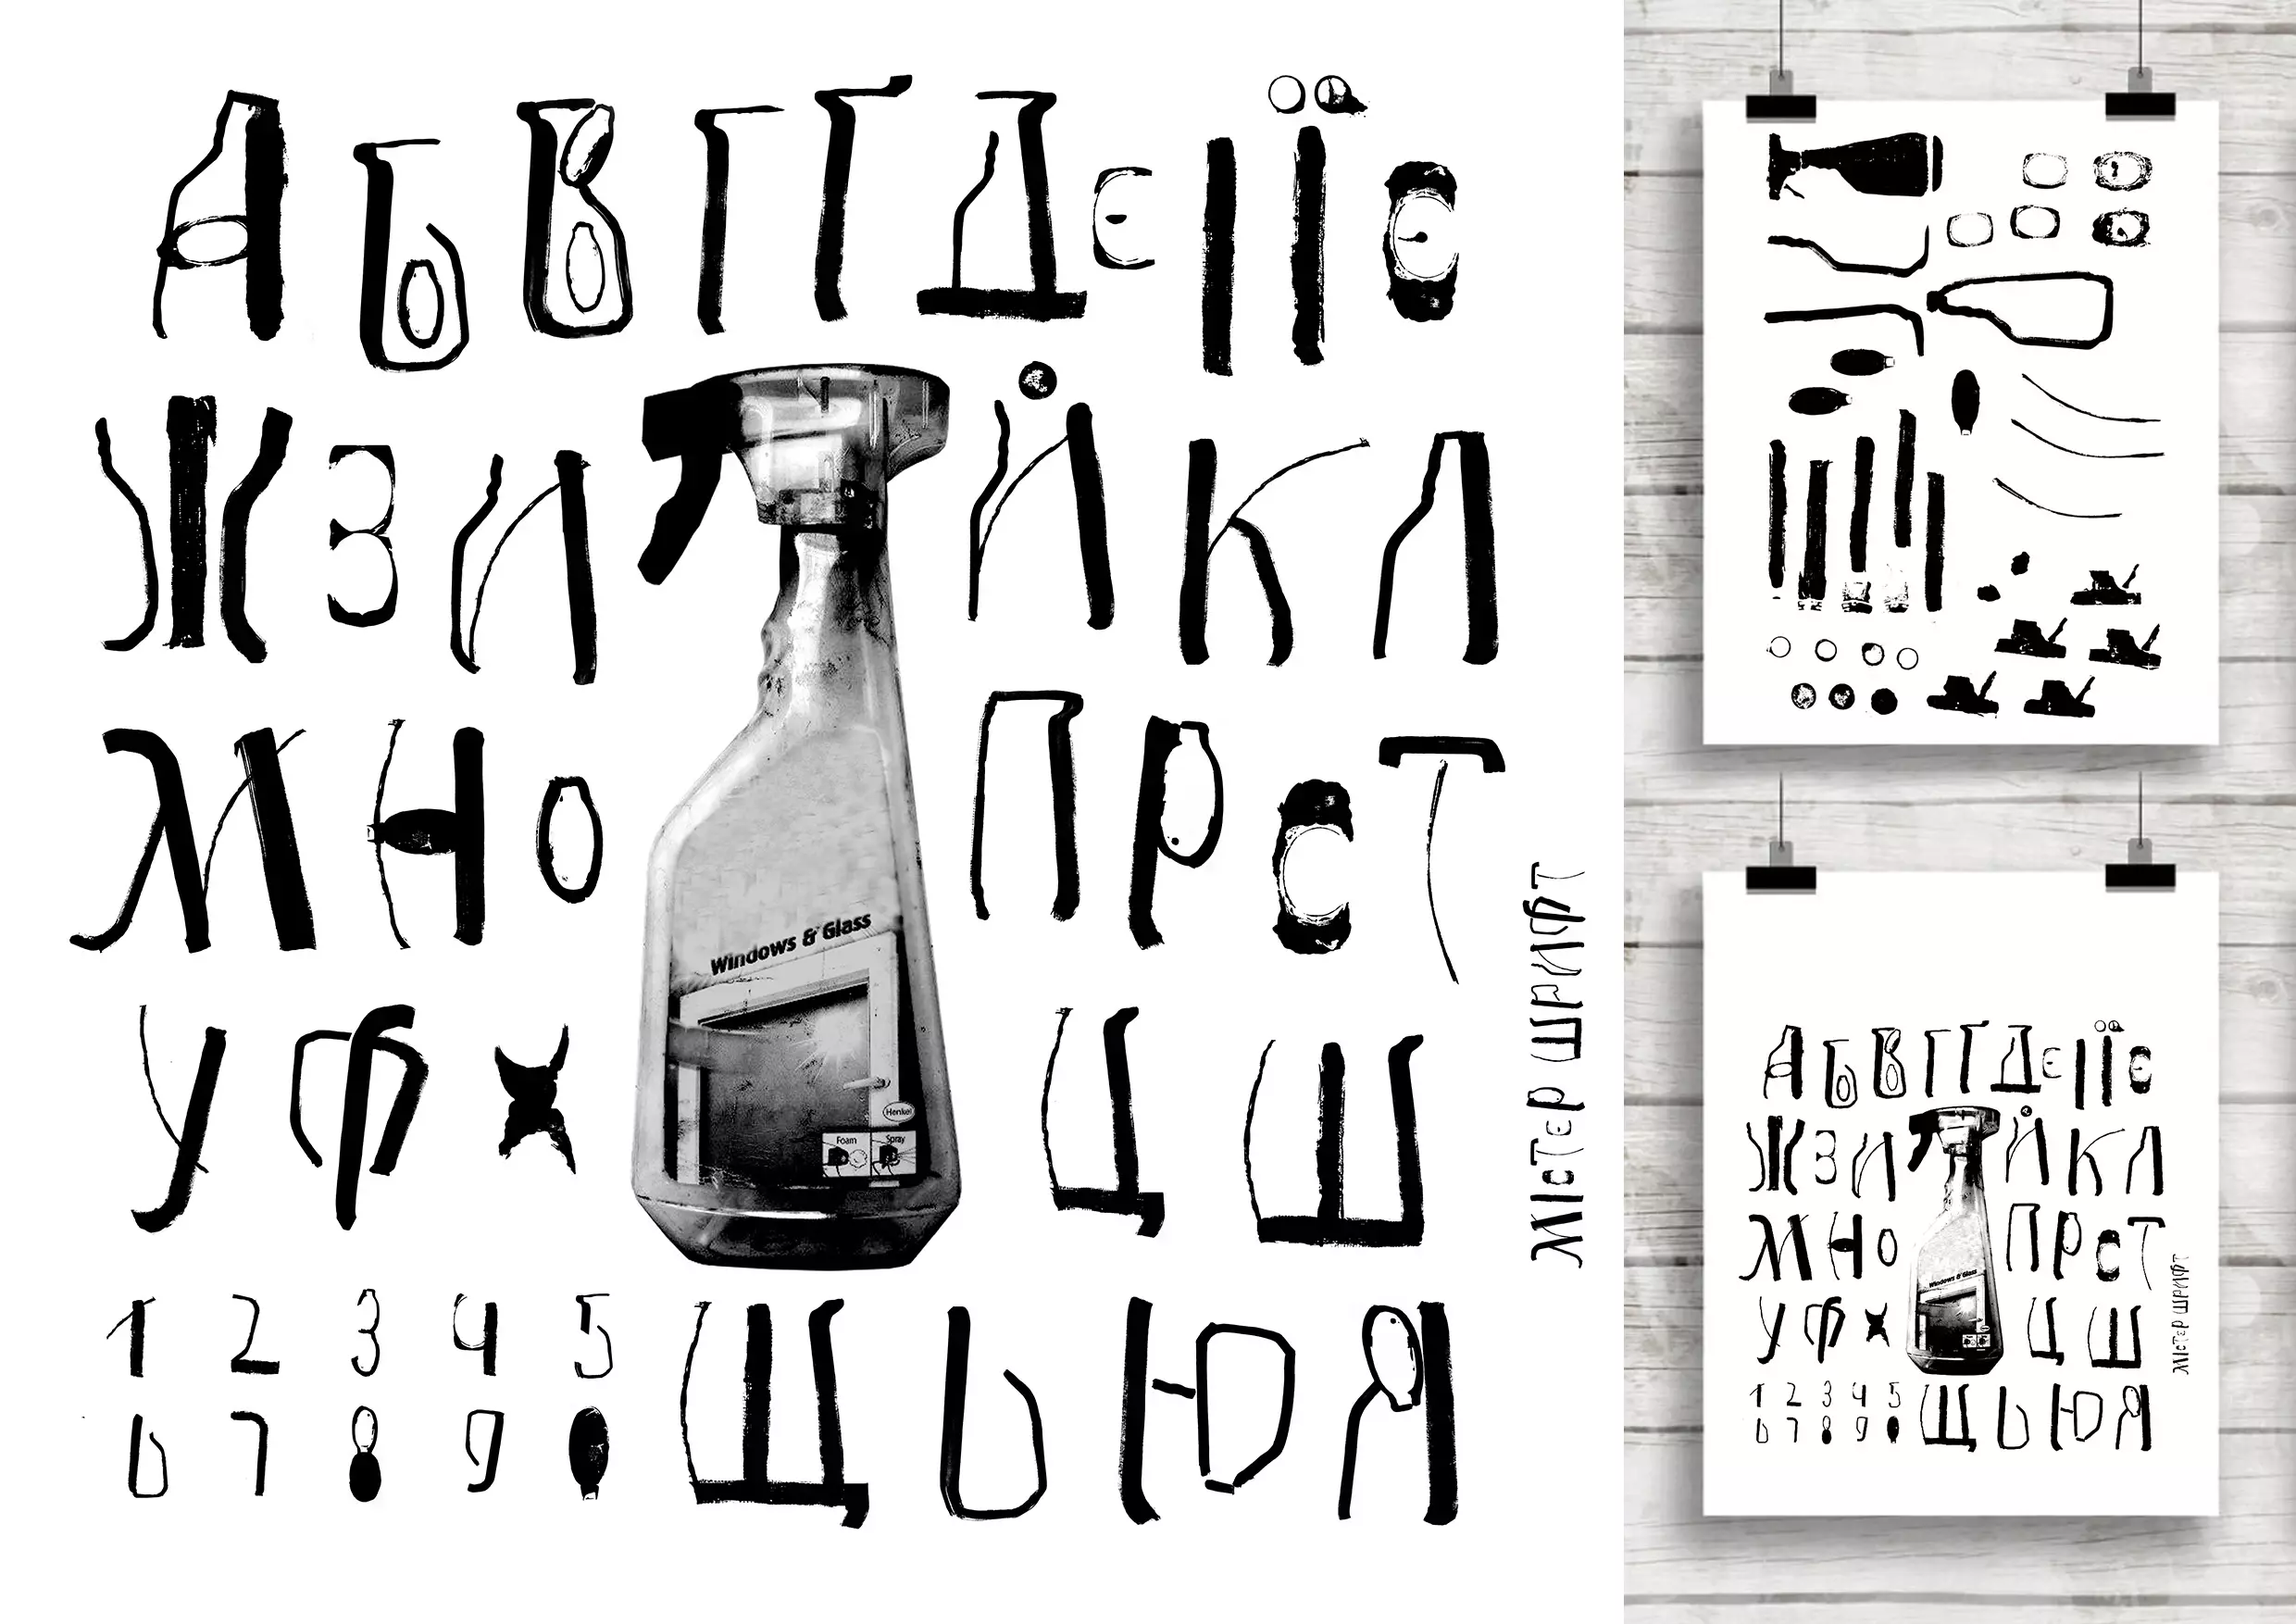 А Б В Г Ґ Д Е І Ї Є
Ж З И Й К Л
М Н О П Р С Т
У Ф Х Ц Ш
1 2 3 4 5 Щ Ь Ю Я
6 7 8 9 0
Windows & Glass
Henkel
Foam Spray
МІСТЕР ШРИФТ
А Б В Г Ґ Д Е І Ї Є
Ж З И Й К Л
М Н О П Р С Т
У Ф Х Ц Ш
1 2 3 4 5 Щ Ь Ю Я
6 7 8 9 0
Windows & Glass
МІСТЕР ШРИФТ